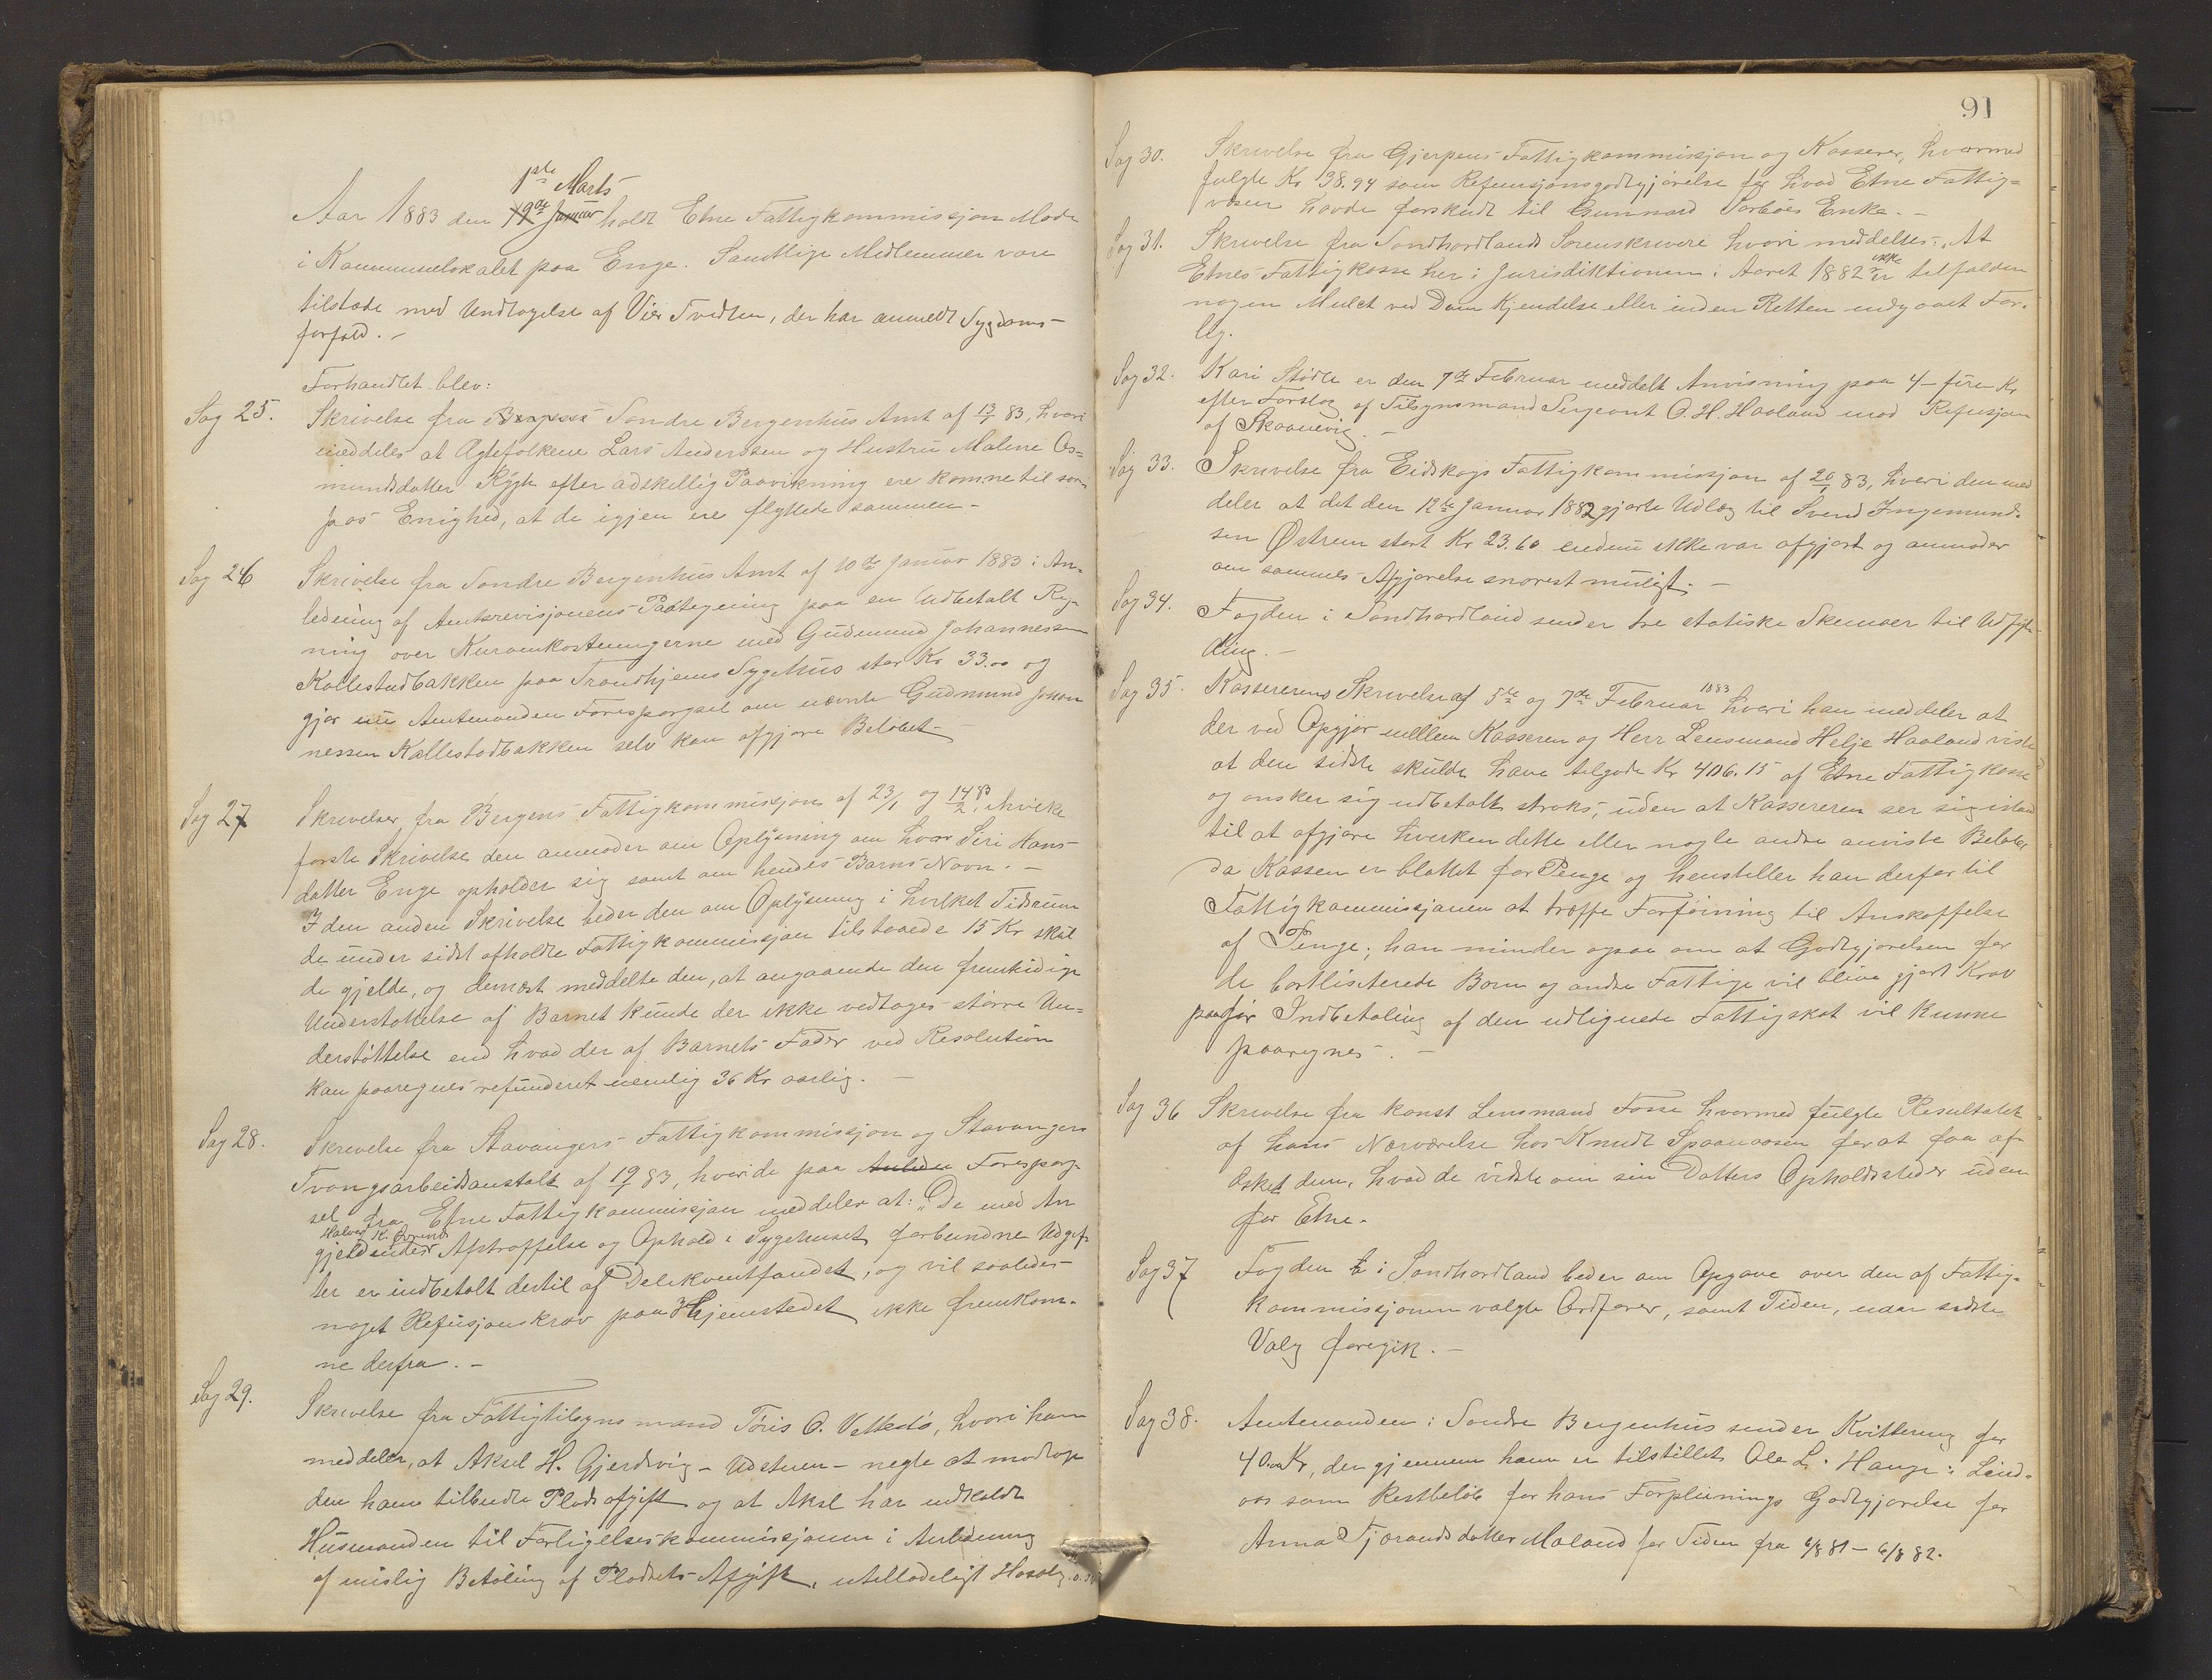 1ste Marts
Aar 1883 den 19de Januar holdt Etne Fattigkommissjon Møde
i Kommunelokalet paa Enge. Samtlige Medlemmer vare
tilstæde med Undtagelse af Vier Tvedten, der har anmeldt Sygdoms-
forfald. -
Forhandlet blev:
Sag 25. Skrivelse fra Søndre Bergenhus Amt af 83, hvori
meddeles at Ægtefolkene Lars Anderssen og Hustru Malene Os=
mundsdatter efter adskellig Paavirkning ere komne til saa-
pas Enighed, at de igjen ere flyttede sammen. -
Sag 26 Skrivelse fra Søndre Bergenhus Amt af 10de Januar 1883 i An-
ledning af Amtsrevisjonens Paategning paa en Udbetalt Reg-
ning over Kuromkostningerne med Gudmund Johannessen
Kallestadbakken paa Trondhjems Sygehus stor Kr 33.00 og
gjør nu Amtmanden Forespørgsel om nævnte Gudmund Johan
nessen Kallestadbakken selv kan afgjøre Beløbet -
Sag 27 Skrivelser fra Bergens Fattigkommissjon af 23/1 og 14/2 83, i hvilke
første Skrivelse den anmoder om Oplysning om hvor Siri Hans-
datter Enge opholder sig samt om hendes Barns Navn. -
I den anden Skrivelse beder den om Oplysning i hvilket Tidsrum
de under sidst afholdte Fattigkommissjon tilstaaede 15 Kr skul
de gjelde, og dernæst meddelte den, at angaaende den fremtidige
Understøttelse af Barnet kunde der ikke vedtages større Un=
derstøttelse end hvad der af Barnets Fader ved Resolution
kan paaregnes refunderet nemlig 36 Kr aarlig. -
Sag 28. Skrivelse fra Stavangers Fattigkommissjon og Stavangers
Tvangsarbeidsanstalt af 83, hvori de paa Forespørg-
sel fra Etne Fattigkommissjon meddeler at: "De med An
Halvor K.
gjeldendes Afstraffelse og Ophold i Sygehuset forbundne Udgif-
ter er indbetalt dertil af Delikventfondet, og vil saaledes
noget Refusjonskrav paa Hjemstedet ikke fremkom-
ne derfra. -
Sag 29. Skrivelse fra Fattigtilsynsmand Tøris O. Vettestø, hvori han
meddeler, at Aksel H. Gjerdevig - Udstuen - negte at modtage
den ham tilbudte Pladsafgift og at Aksel har indkaldt
Husmanden til Forligelseskommissjonen i Anledning
af mislig Betaling af Pladsets Afgift, utilladeligt
91
Sag 30. Skrivelse fra Gjerpens Fattigkommissjon og Kasserer, hvormed
fulgte Kr 38.94 som Refusjonsgodtgjørelse for hvad Etne Fattig=
væsen havde forskudt til Gunnard Sørbøes Enke. -
Sag 31. Skrivelse fra Søndhordlands Sorenskriveri hvori meddeles: "At
Etnes Fattigkasse her i Jurisdiktionen i Aaret 1882 ikke er tilfalden
nogen Mulct ved Dom Kjendelse eller inden Retten indgaaet For-
lig.
Sag 32. Kari Stødle er den 7de Februar meddelt Anvisning paa 4 - fire Kr
efter Forslag af Tilsynsmand Sergeant O. H. Haaland mod Refusjon
af Skaanevig. -
Sag 33. Skrivelse fra Eidskogs Fattigkommissjon af 20/1 83, hvori den med
deler at det den 12te Januar 1882 gjorte Udlæg til Svend Ingemund-
sen Østrem stort Kr 23.60 endnu ikke var afgjort og anmoder
om sammes Afgjørelse snarest muligt. -
Sag 34. Fogden i Søndhordland sender tre statiske Skemaer til Udfyl-
ding. -
Sag 35. Kassererens Skrivelse af 5te og 7de Februar 1883 hvori han meddeler at
der ved Opgjør mellem Kasseren og Herr Lensmand Helje Haaland viste
at den sidste skulde have tilgode Kr 406.15 af Etne Fattigkasse
og ønsker sig udbetalt straks, uden at Kassereren ser sig istand
til at afgjøre hverken dette eller nogle andre anviste Beløber
da Kassen er blottet for Penge og henstiller han derfor til
Fattigkommissjonen at træffe Forføining til Anskaffelse
af Penge; han minder ogsaa om at Godtgjørelsen for
de bortlisiterede Børn og andre Fattige vil blive gjort Krav
paa før Indbetaling af den udlignede Fattigskat vil kunne
paaregnes. -
Sag 36 Skrivelse fra konst Lensmand Fosse hvormed fulgte Resultatet
af hans Nærværelse hos Knudt Spaanaasen for at faa af-
æsket dem, hvad de vidste om sin Datters Opholdssteder uden
for Etne.
Sag 37 Fogden i Søndhordland beder om Opgave over den af Fattig-
kommissjonen valgte Ordfører, samt Tiden, naar sidste
Valg foregik. -
Sag 38. Amtmanden i Søndre Bergenhus sender Kvittering for
40.00 Kr, der gjennem ham er tilstillet Ole L. Hauge i Lind-
aas som Restbeløb for hans Forpleinings Godtgjørelse for
Anna Tjærandsdatter Møland for Tiden fra 6/8 81 - 6/8 82.